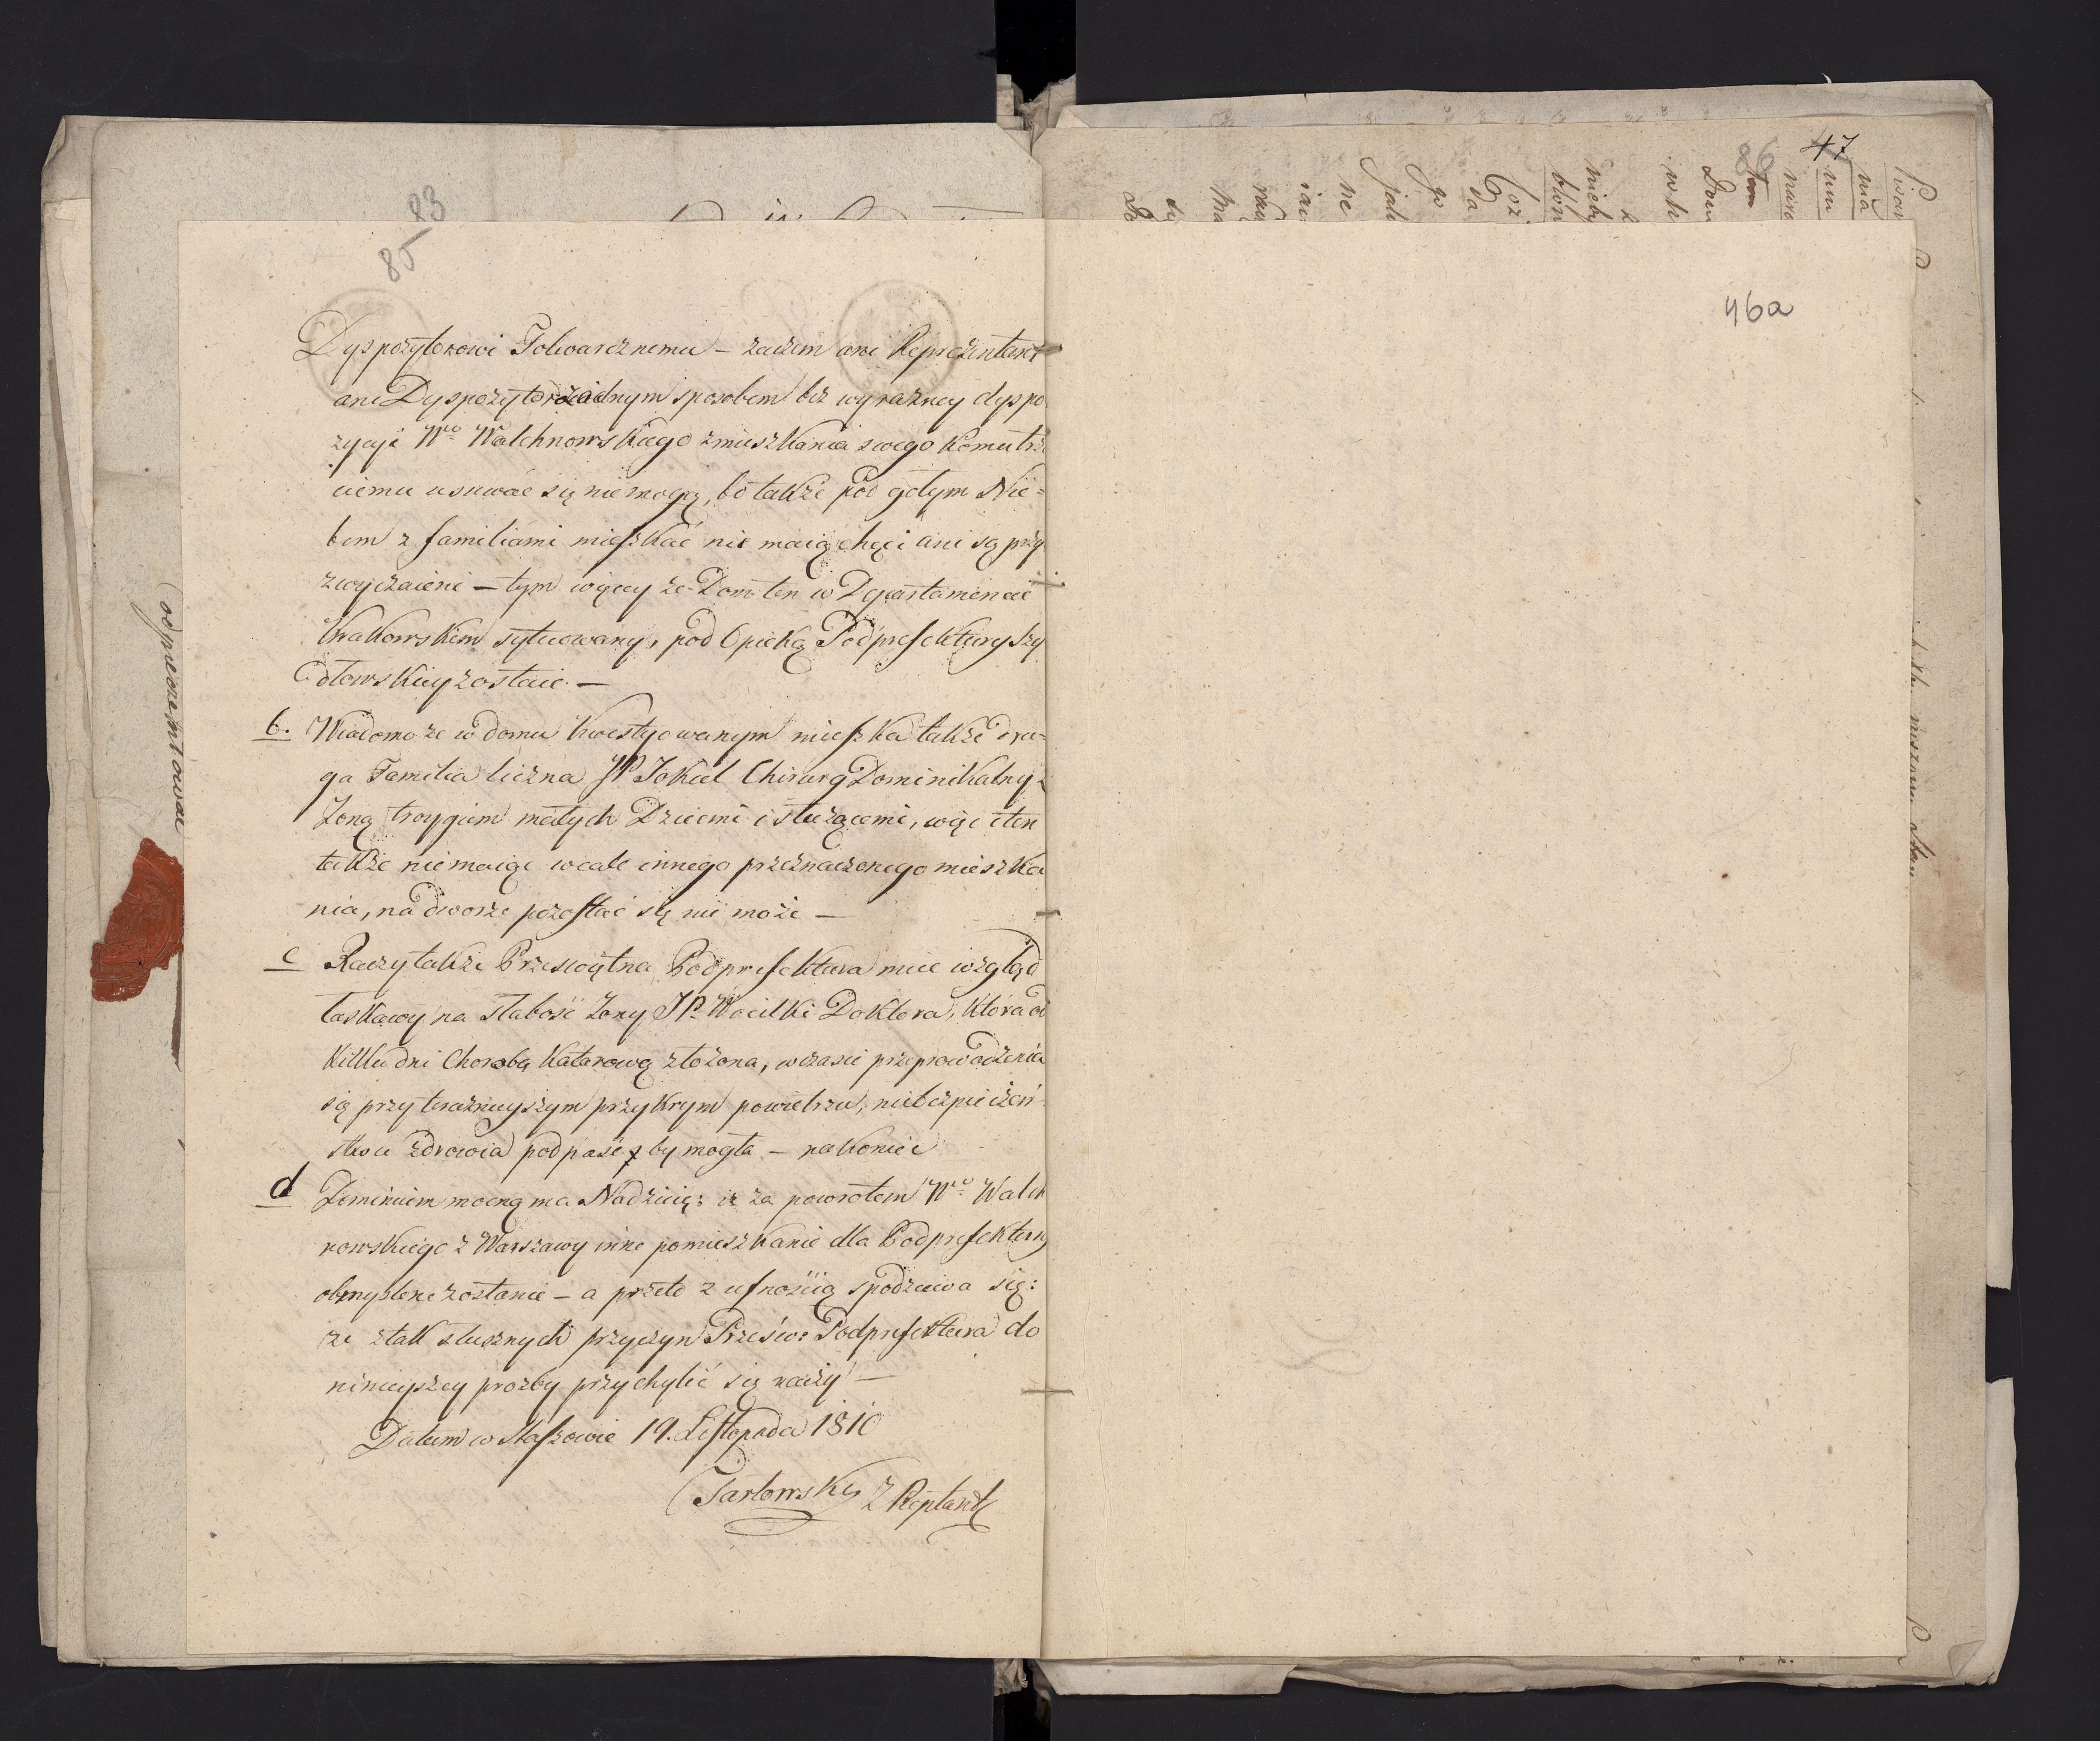 83
85
Dyspozytorowi Folwarcznemu – zaczem ani Reprezentant
ani Dyspozytor żadnym sposobem bez wyrazney dyspo
zycyi Wgo Walchnowskiego zmieszkania swego komu trze
ciemu usuwać się nie mogą, bo także pod gołym Nie=
bem z familiami mieszkać nie maią chęci ani są przy
zwyczaieni – tym więcey że Dom ten w Departamencie
Krakowskim sytuowany, pod Opieką Podprefektury Szy
dłowskiey zostaie. –
b. Wiadomo że w domu kwestyowanym mieszka także dru=
ga Familia liczna JP Jokiel Chirurg Dominikalny z
Żoną troygiem małych Dziećmi i służącemi, więc i ten
także niemaiąc wcale innego przeznaczonego mieszka
nia, na dworze pozostać się nie może –
c Raczy także Przeświętna Podprefektura mieć wzgląd
łaskawy na słabość Żony JP. Wocilki Doktora, która od
kilku dni Chorobą Katarową złożona, w czasie przeprowadzenia
się przy teraznieyszym przykrym powietrzu, niebezpieczeń
stwu zdrowia podpaść by mogła – nakoniec
d Dominium mocną ma Nadzieię: iż za powrotem Wgo Walch
nowskiego z Warszawy inne pomieszkanie dla Podprefektury
obmyslone zostanie – a przeto z ufnością spodziewa się:
że z tak słusznych przyczyn Prześw: Podprefektura do
ninieyszey prozby przychylić się raczy –
Datum w Staszowie 19. Listopada 1810
Tarłowski Z Reptant
odprezentowac
47
86
46a